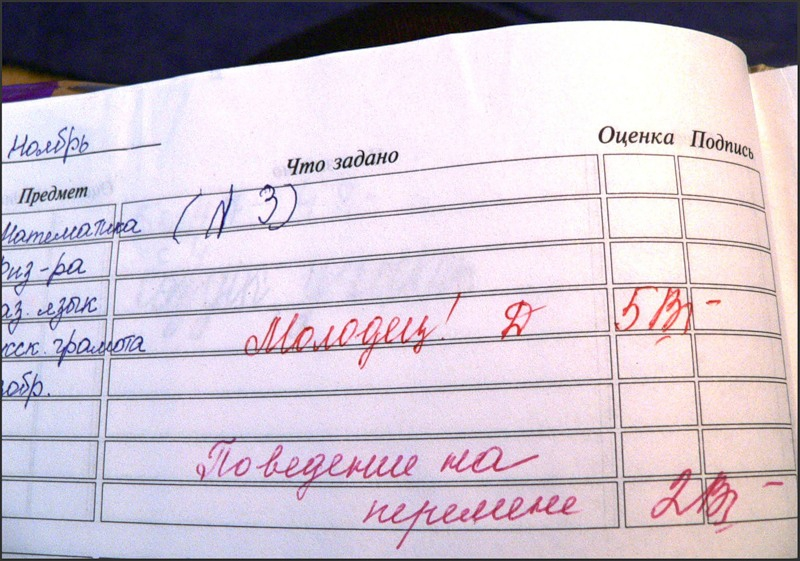 Ноябрь
Предмет Что задано Оценка Подпись
Математика (N 3)
физ-ра
аз. язык Молодец! Д 5
сск. грамота
зобр.
Поведение на
перемене 2